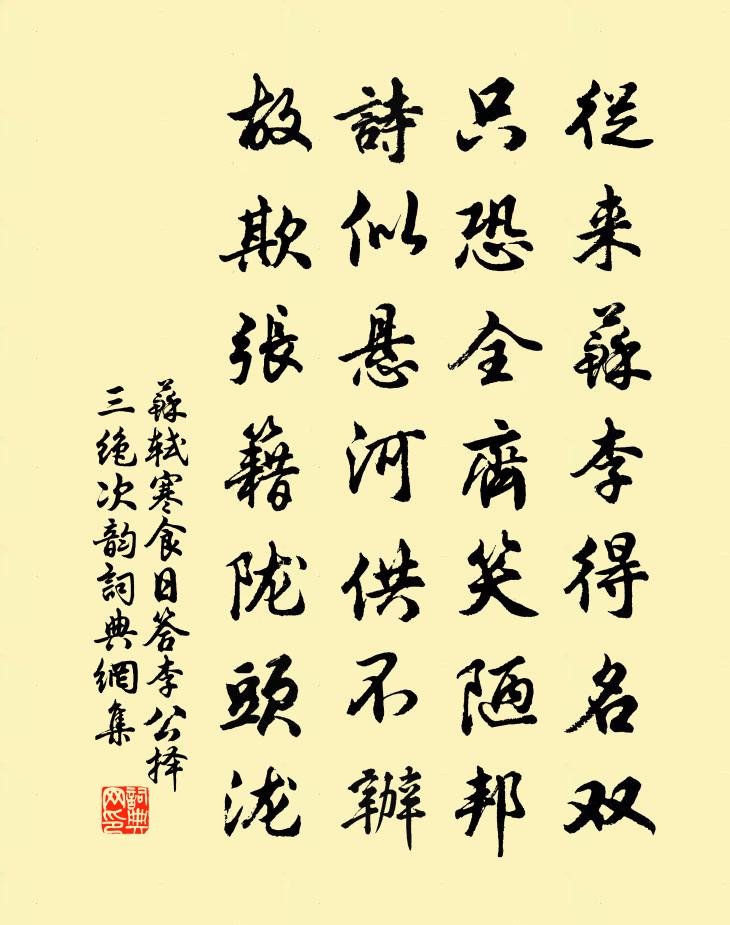 從来蘇李得名双
只恐全齊笑陋邦
詩似悬河供不辦
故欺張籍陇頭泷
蘇軾寒食日答李公择
三绝次韵詞典網集
詞典网印